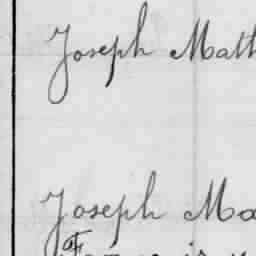 Joseph Matt
Joseph Ma